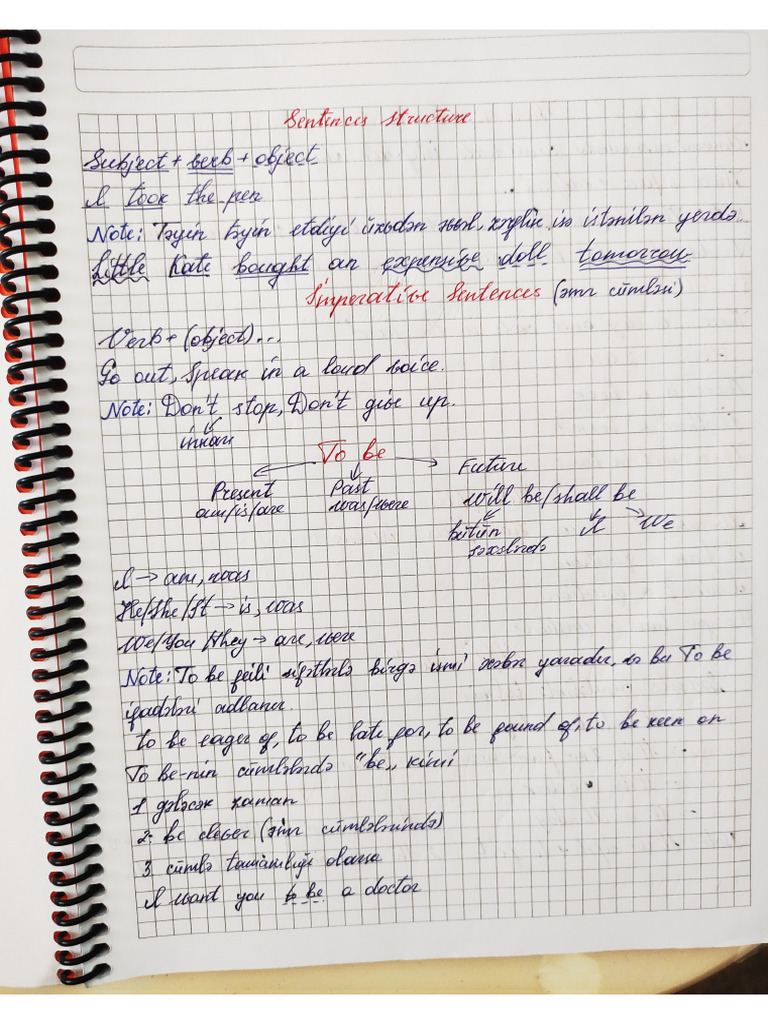 Sentences structure
Subject + verb + object
I took the pen
Note: Təyin təyin etdiyi üzvdən əvvəl, zərflik isə istənilən yerdə.
Little Kate bought an expensive doll tomorrow
Imperative Sentences (əmr cümləsi)
Verb + (object)...
Go out, Speak in a loud voice.
Note: Don't stop, Don't give up.
inkar
To be
Present Past Future
am/is/are was/were will be/shall be
bütün I We
şəxslərdə
I → am, was
He/She/It → is, was
We/You/they → are, were
Note: To be feili sifətlərlə birgə ismi xəbər yaradır, və bu To be
ifadələri adlanır
to be eager of, to be late for, to be found of, to be keen on
To be-nin cümlələrdə "be,, kimi
1 gələcək zaman
2. be clever (əmr cümlələrində)
3 cümlə tamamlığı olarsa
I want you to be a doctor